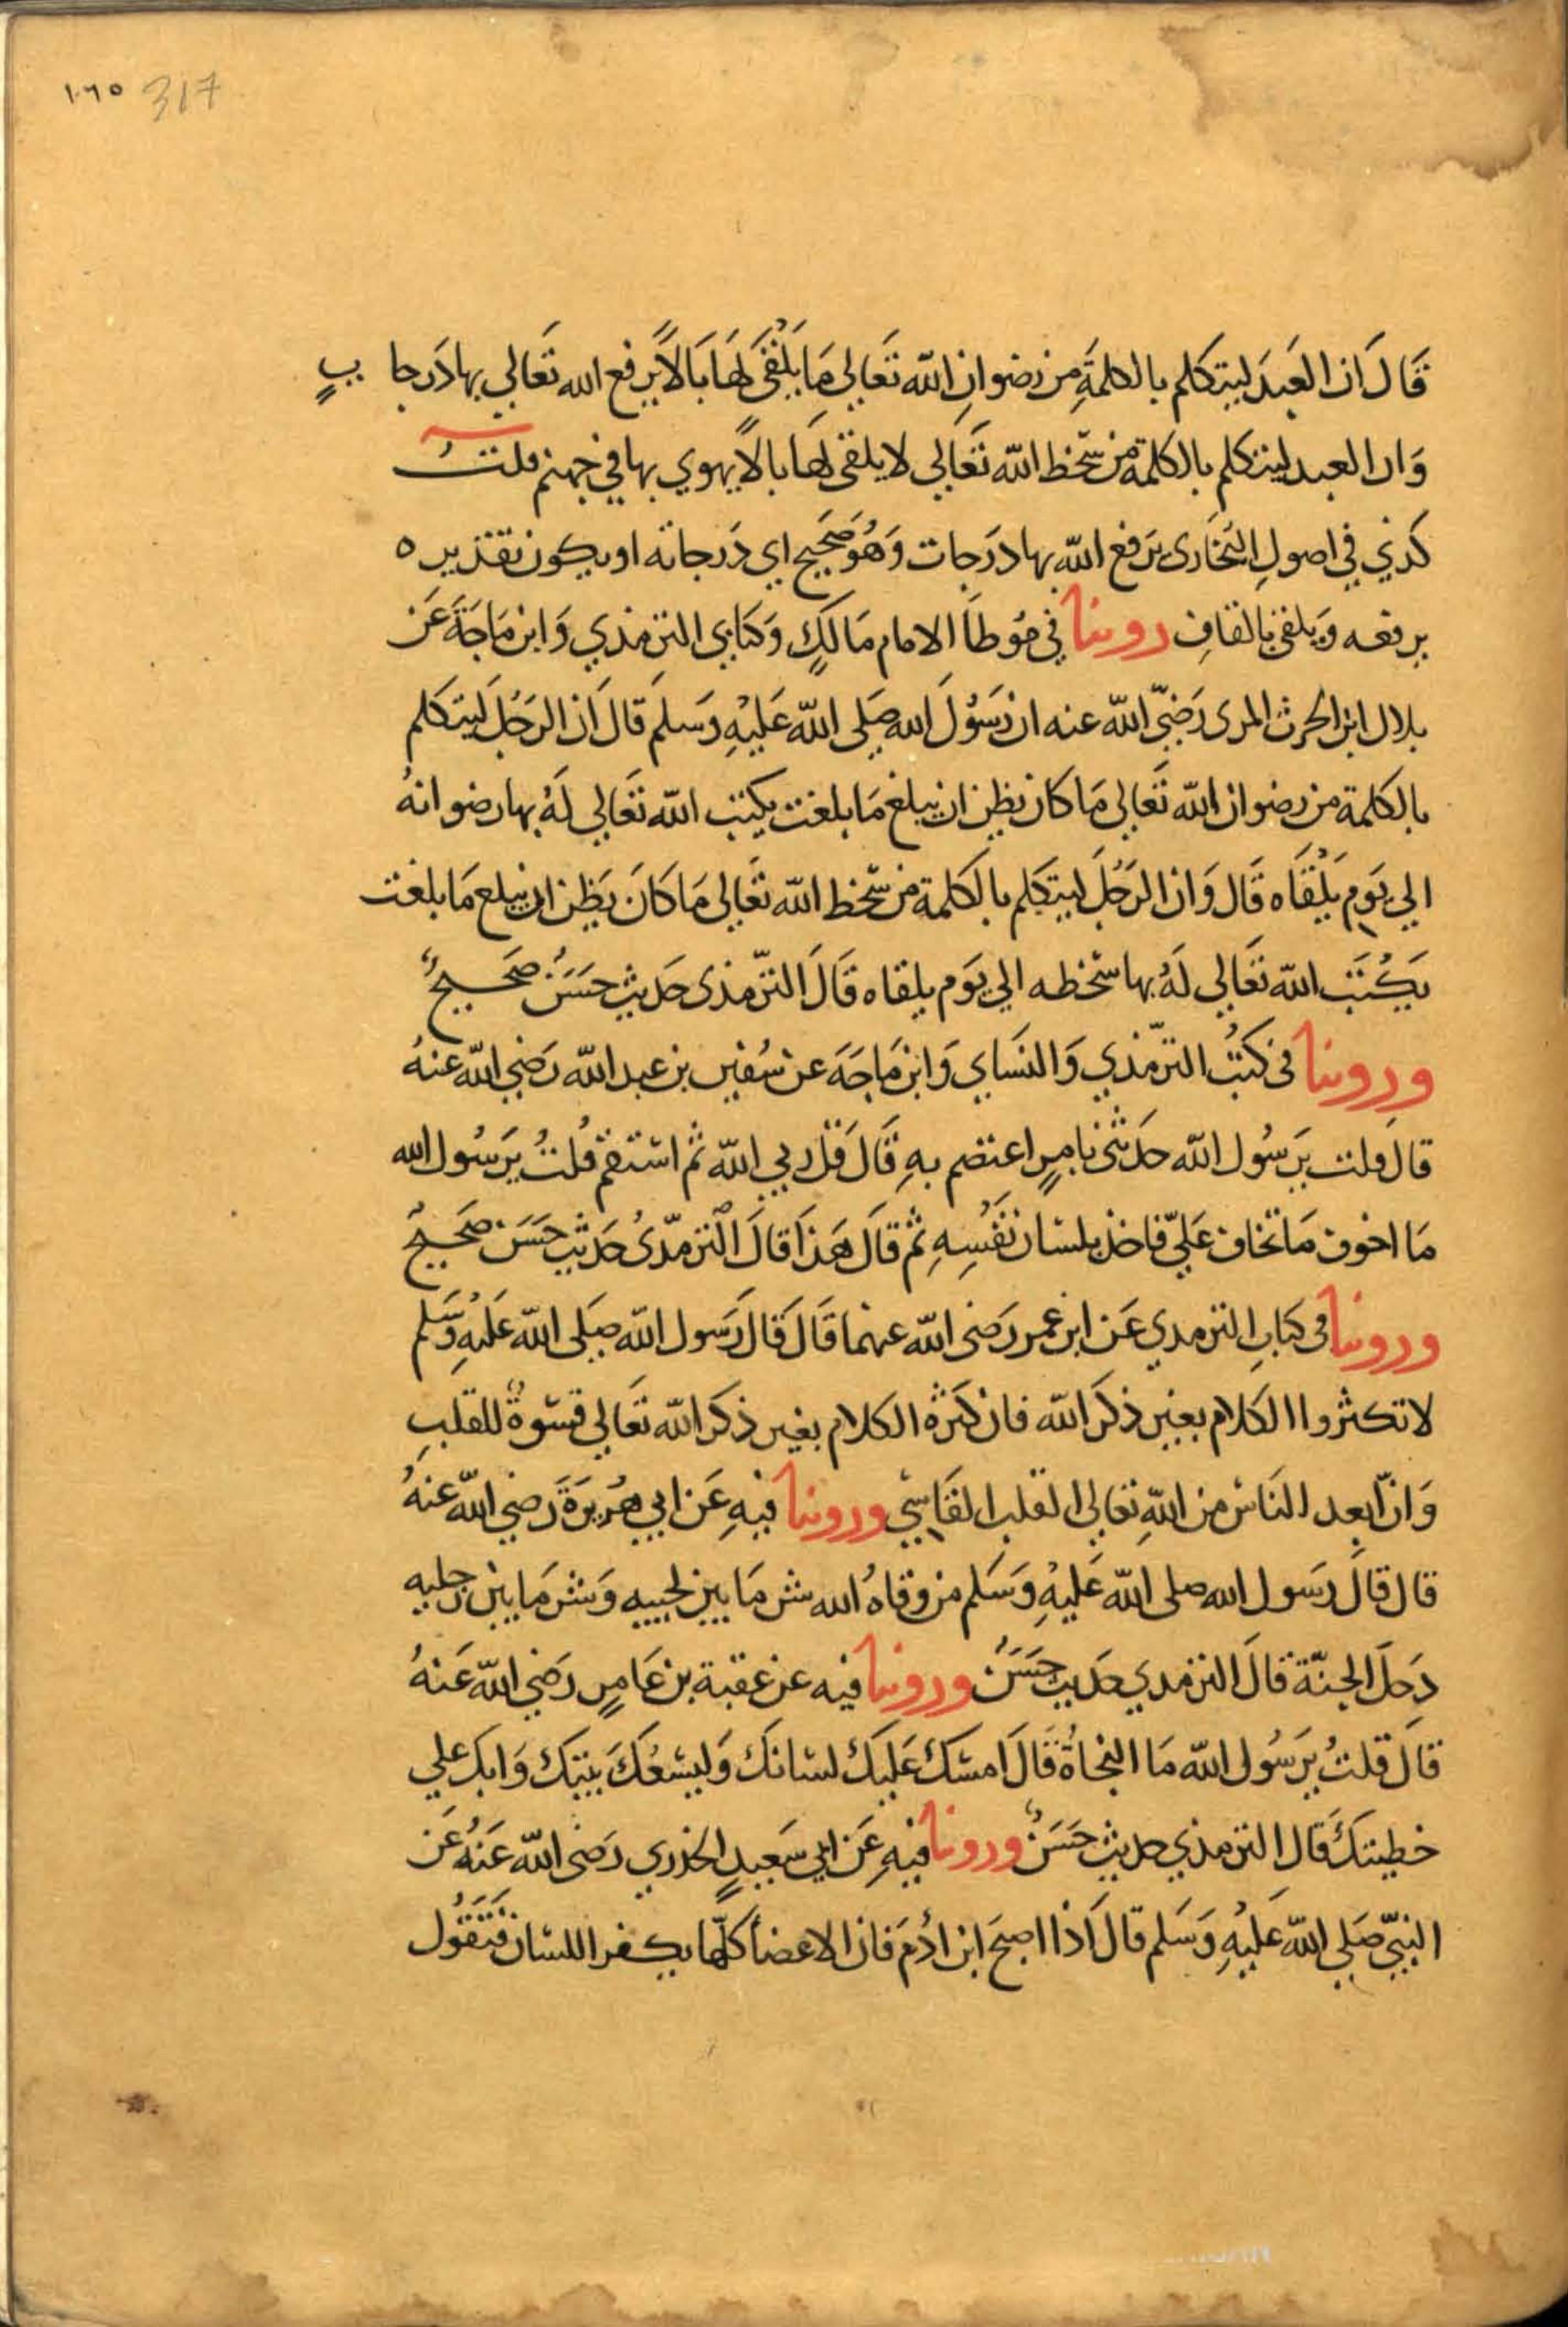 ١٠٦٥ 317
قَالَ ان العَبدَ ليتكلم بالكلمَةِ من رضوانِ الله تَعَالي مَا يَلْقَى لهَا بَالاً يرفع الله تَعَالي بها دَرجا تٍ
وَان العبد ليتكلم بالكلمة من سَّخط الله تَعَالي لا يلقى لهَا بالاً يهوي بها في جهنم قلتُ
كذي في اصولِ البُخَارى يَرفع الله بها دَرَجات وَهُوَ صَحَيح اي دَرجاته او يكون تقديره
يرفعه وَيلقى بالقافِ روينا في مُوطاَ الامام مَالكٍ وَكتابي الترمذي وَابن مَاجَةَ عَن
بلال ابن الحرث المزى رَضيّ الله عنه ان رَسُولَ الله صَلى الله عَليْهِ وَسَلمَ قالَ ان الرَجُلَ ليتكلم
بالكلمة من رضوان الله تَعَالي مَا كَان يظن ان يبلغ مَا بلغت يكتب الله تَعَالي لَهُ بها رضوانهُ
الي يَوم يَلْقَاه قَال وَان الرَجُلَ ليتكلم بالكلمة من سَّخط الله تعَالي مَا كَانَ يَظن ان يبلع مَا بلغت
يَكُتبَ الله تعَالي لَهُ بها سّخطه الي يَوم يلقاه قَالَ الترّمذى حَديث حَسَنُ صَحيحٌ
وروينا في كتبُ الترّمذي وَالنسَاي وَابن مَاجَهَ عن سُفين بن عبد الله رَضي الله عنهُ
قال قلت يرَسُول الله حَدثنى بامرٍ اعتصم بهِ قَالَ قلْ ربي الله ثم اسْتقمْ قُلتُ يرَسُول الله
مَا اخوف مَا تخاف عَليّ فاخذ بلسَان نَفْسِهِ ثم قَال هَذَا قالَ الْترمذّىُ حَديث حَسَن صَحيحٌ
وروينا فى كتابِ الترمدي عَن ابن عمر رَضى الله عنهما قَالَ قَال رَسول الله صَلى الله عَليْهِ وَسَلم
لا تكثروا الكلام بغير ذكرَ الله فان كَثرة الكلام بغير ذكرَ الله تعَالي قسْوةٌ للقلبِ
وَانّ ابعد النَاسْ من اللهِ تعَالي القلب القَاسيْ وروينا فيهِ عَن ابي هُريرَةَ رَضي الله عَنهُ
قال قالَ رَسول الله صلى الله عَليْهِ وَسَلم من وقاهُ الله شر مَا بين لحييه وَشر مَا بين رجليه
دَخلَ الجنّة قالَ الترمدي حَديث حَسَنُ وروينا فيه عن عقبة بن عَامرٍ رَضي الله عَنهُ
قالَ قلتُ يرَسُول الله مَا النجَاةُ قَالَ امسْك عَليَك لسَانكَ وَليسَعُكَ بيتِك وَابك علي
خطيتكَ قَالِ الترمذي حديث حَسَنٌ وروينا فيهِ عَن ابي سَعيدٍ الخذري رَضى الله عَنهُ عَن
النبيّ صَلي الله عَليْهِ وَسَلم قالَ اذا اصبحَ ابن اَدُمَ فان الاعضاَ كلّها يكفر اللسَان فتقُول